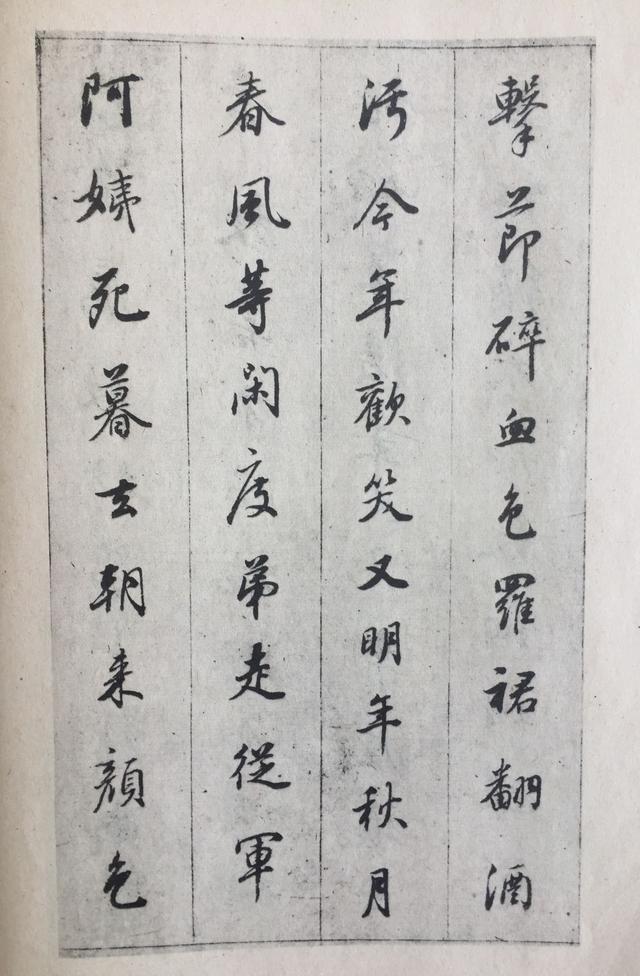 擊節碎血色羅裙翻酒
污今年歡笑又明年秋月
春風等閑度弟走從軍
阿姨死暮去朝来顏色